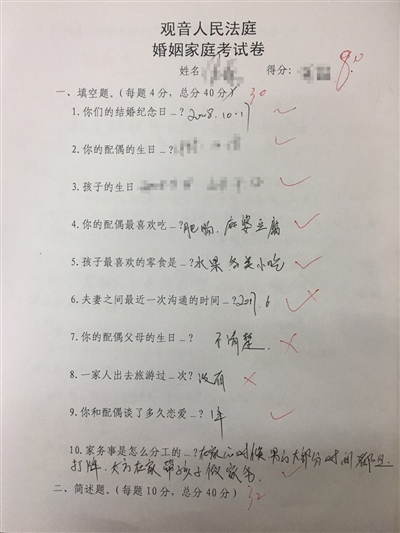 观音人民法庭
婚姻家庭考试卷
姓名 得分: 80
一、填空题。(每题4分，总分40分) 30
1.你们的结婚纪念日_? 2008.10.17
2.你的配偶的生日_?
3.孩子的生日
4.你的配偶最喜欢吃_?肥肠、麻婆豆腐
5.孩子最喜欢的零食是_?水果 各类小吃
6.夫妻之间最近一次沟通的时间_?2017.6
7.你的配偶父母的生日_? 不清楚
8.一家人出去旅游过_次?没有
9.你和配偶谈了多久恋爱_? 1年
10.家务事是怎么分工的_?在家的时候 男的大部分时间都是
打牌、女方在家带孩子做家务
二、简述题。(每题10分，总分40分) 32